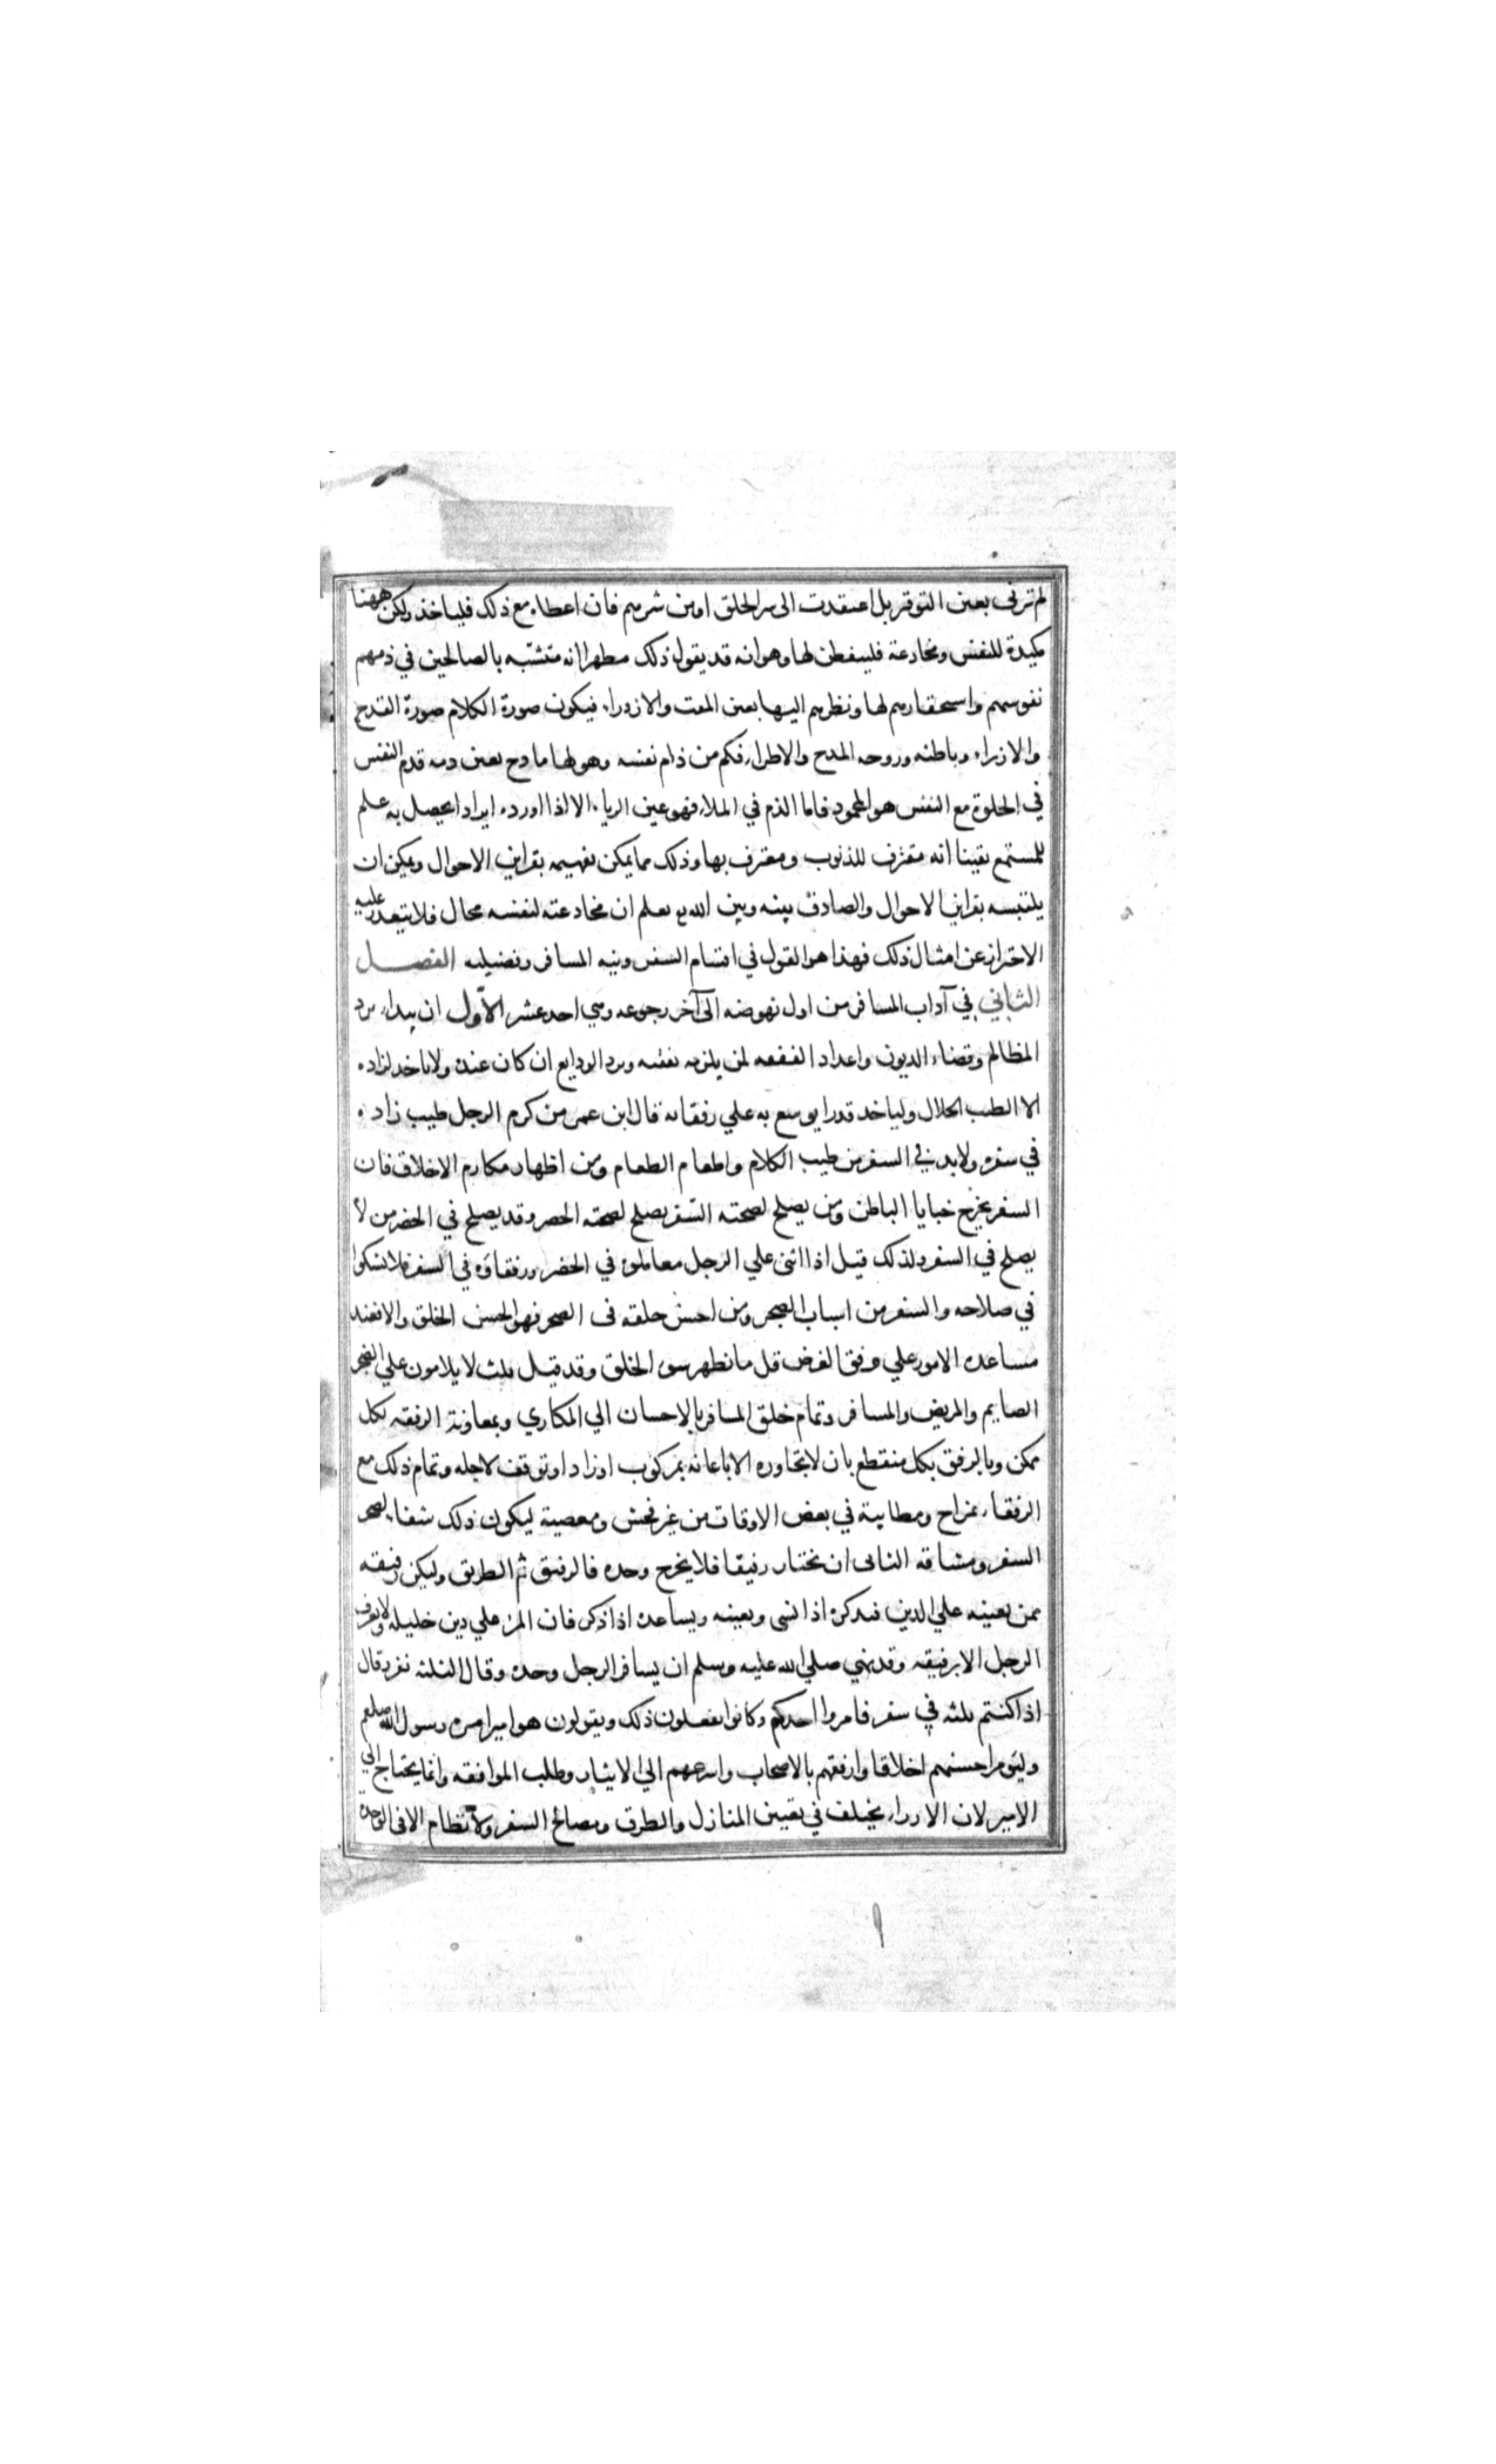 لم ترنى بعين التوقير بل اعتقدت انى شر الخلق او من شرهم فان اعطاه مع ذلك فلياخذ ولكن ههنا
مكيدة للنفس ومخادعة فليتفطن لها وهو انه قد يقول ذلك مظهرا انه متشبه بالصالحين في ذمهم
نفوسهم واستحقارهم لها ونظرهم اليها بعين المقت والازدراء فيكون صورة الكلام صورة القدح
والازراء وباطنه وروحه المدح والاطراء فكم من ذام نفسه وهو لها مادح بعين ذمه فذم النفس
في الخلوة مع النفس هو المحمود فاما الذم في الملاء فهو عين الرياء الا اذا اورده ايرادا يحصل به علم
للمستمع يقينا انه مقترف للذنوب ومعترف بها وذلك مما يمكن تفهيمه بقراين الاحوال ويمكن ان
يلتبسه بقراين الاحوال والصادق بينه وبين الله يع يعلم ان مخادعته لنفسه محال فلا يتعذر عليه
الاحتراز عن امثال ذلك فهذا هو القول في اقسام السفر ونيه المسافر وفضيلته الفصل
الثاني في آداب المسافر من اول نهوضه الى آخر رجوعه وهي احد عشر الاول ان يبداء برد
المظالم وقضاء الديون واعداد النفقه لمن يلزمه نفقته وبرد الودايع ان كان عنده ولا ياخذ لزاده
الا الطيب الحلال ولياخذ قدرا يوسع به علي رفقائه قال ابن عمر من كرم الرجل طيب زاده
في سفره ولا بد في السفر من طيب الكلام واطعام الطعام ومن اظهار مكارم الاخلاق فان
السفر يخرج خبايا الباطن ومن يصلح لصحبته السفر يصلح لصحبته الحضر وقد يصلح في الحضر من لا
يصلح في السفر ولذلك قيل اذا اثنى علي الرجل معاملوه في الحضر ورفقاؤه في السفر فلا تشكوا
في صلاحه والسفر من اسباب الضجر ومن احسن خلقه فى الضجر فهو الحسن الخلق والا فعند
مساعدة الامور علي وفق الغرض قل ما يظهر سوء الخلق وقد قيل ثلث لا يلامون علي الضجر
الصايم والمريض والمسافر وتمام خلق المسافر بالاحسان الي المكاري وبمعاونة الرفقه بكل
ممكن وبالرفق بكل منقطع بان لا يتجاوزه الا باعانه بمركوب او زاد او توقف لاجله وتمام ذلك مع
الرفقاء بمزاح ومطايبة في بعض الاوقات من غير فحش ومعصية ليكون ذلك شفاء لضجر
السفر ومشاقه الثانى ان يختار رفيقا فلا يخرج وحده فالرفيق ثم الطريق وليكن رفيقه
ممن يعينه علي الدين فيذكره اذا نسى ويعينه ويساعده اذا ذكر فان المرء علي دين خليله ولا يعرف
الرجل الا برفيقه وقد نهي صلي الله عليه وسلم ان يسافر الرجل وحده وقال الثلثه نفر وقال
اذا كنتم ثلثه في سفر فامروا احدكم وكانوا يفعلون ذلك ويقولون هو امير امره رسول الله صلعم
وليؤمر احسنهم اخلاقا وارفقهم بالاصحاب واسرعهم الي الايثار وطلب الموافقه وانما يحتاج الي
الامير لان الاراء يختلف في تعيين المنازل والطرق ومصالح السفر ولا نظام الا فى الوحدة